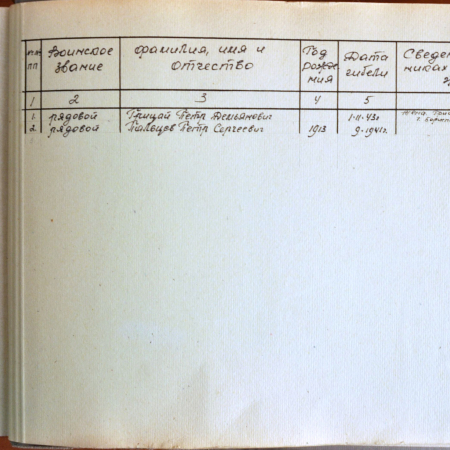 №№ Воинское Фамилия, имя и Год Дата Сведен
пп звание отчество рожде гибели никах
ния
1 2 3 4 5
1. рядовой Грицай Петр Демьянович 1-11-43г
2. рядовой Пальцов Петр Сергеевич 1913 9-1941г.